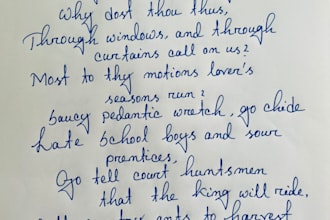 Why dost thou thus,
Through windows, and through
curtains call on us?
Most to thy motions lover's
seasons run?
Saucy pedantic wretch, go chide
Late School boys and sour
prentices,
Go tell court huntsmen
that the king will ride,
ants to harvest